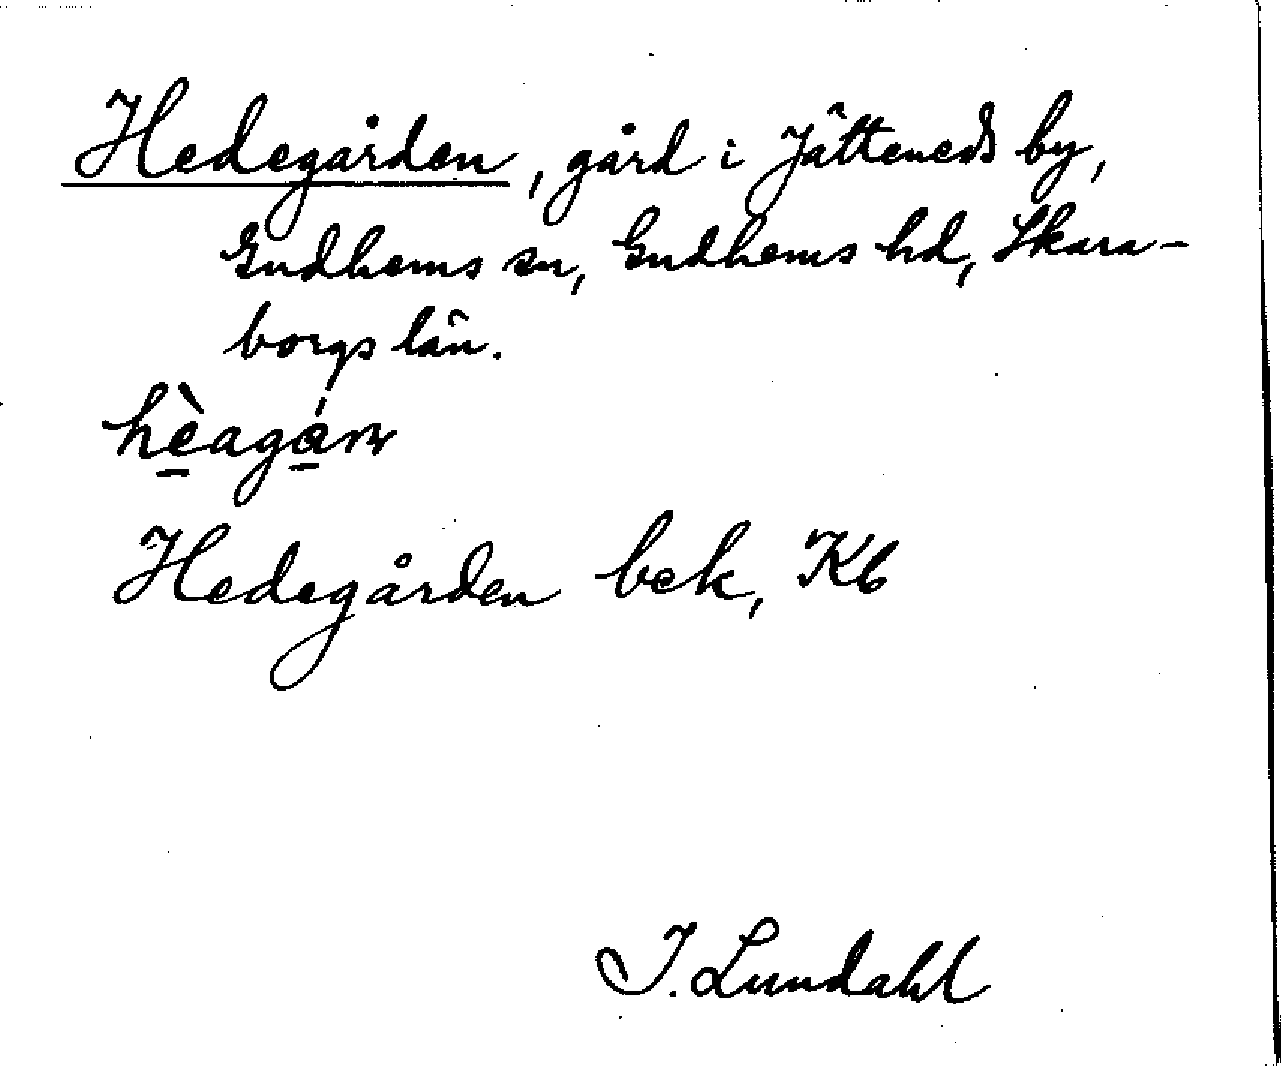 Hedegården, gård i Jätteneds by,
Gudhems sn, Gudhems hd, Skara-
borgs län.
Hedegården bek, Kb
I. Lundahl